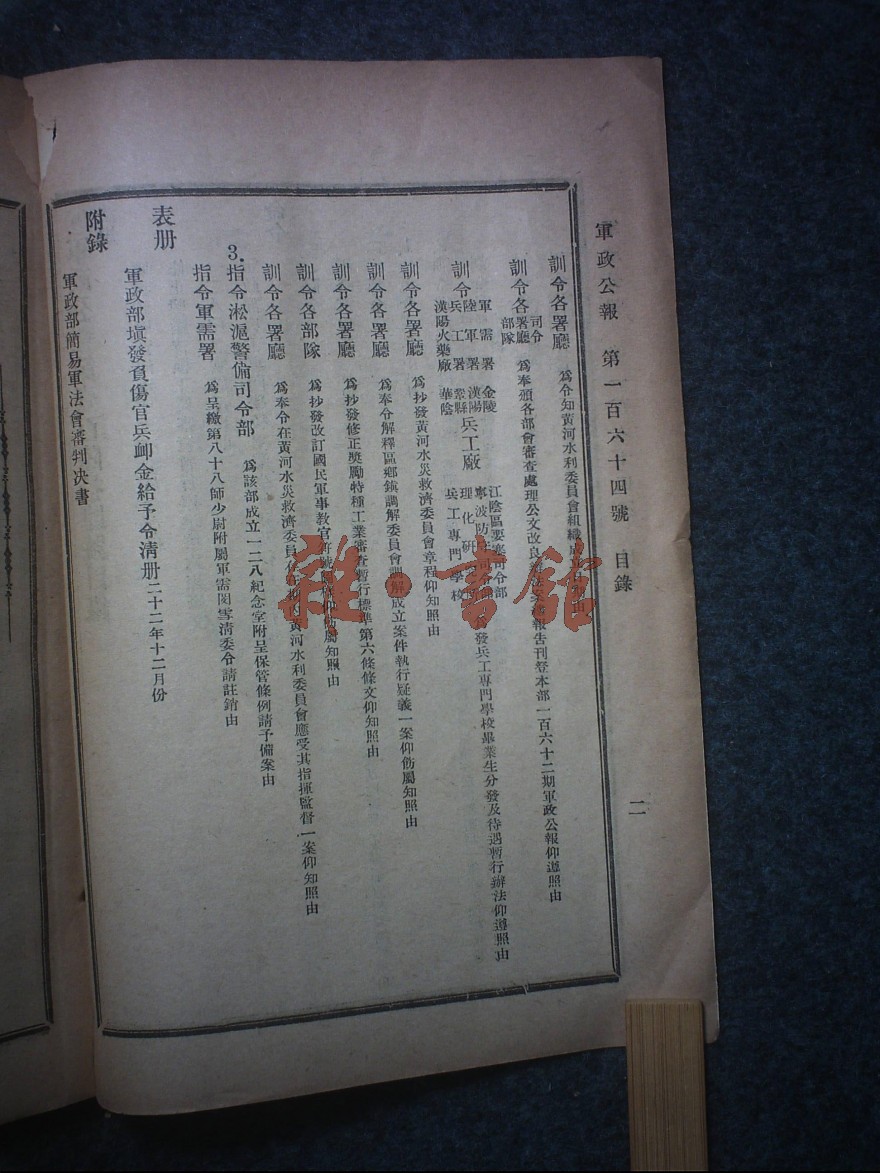 軍政公報 第一百六十四號 目錄 二
訓令各署廳 為令知黃河水利委員會組織
訓令各署廳司令部隊 為奉頒各部會審查處理公文改良辦法 報告刊登本部一百六十二期軍政公報仰遵照由
訓令 軍需署 陸軍署 兵工署 漢陽火藥廠 金陵 漢陽 鞏縣 華陰 兵工廠 江陰區要塞司令部 寧波防守司令部 理化研 兵工專門學校 發兵工專門學校畢業生分發及待遇暫行辦法仰遵照由
訓令各署廳 為抄發黃河水災救濟委員會章程仰知照由
訓令各署廳 為奉令解釋區鄉鎮調解委員會調解成立案件執行疑義一案仰飭屬知照由
訓令各署廳 為抄發修正獎勵特種工業審查暫行標準第六條條文仰知照由
訓令各部隊 為抄發改訂國民軍事教官 仰飭屬知照由
訓令各署廳 為奉令在黃河水災救濟委員 黃河水利委員會應受其指揮監督一案仰知照由
3. 指令淞滬警備司令部 為該部成立一二八紀念堂附呈保管條例請予備案由
指令軍需署 為呈繳第八十八師少尉附屬軍需閔雪清委令請註銷由
表册
軍政部填發負傷官兵卹金給予令清册二十二年十二月份
附錄
軍政部簡易軍法會審判決書
雜·書館